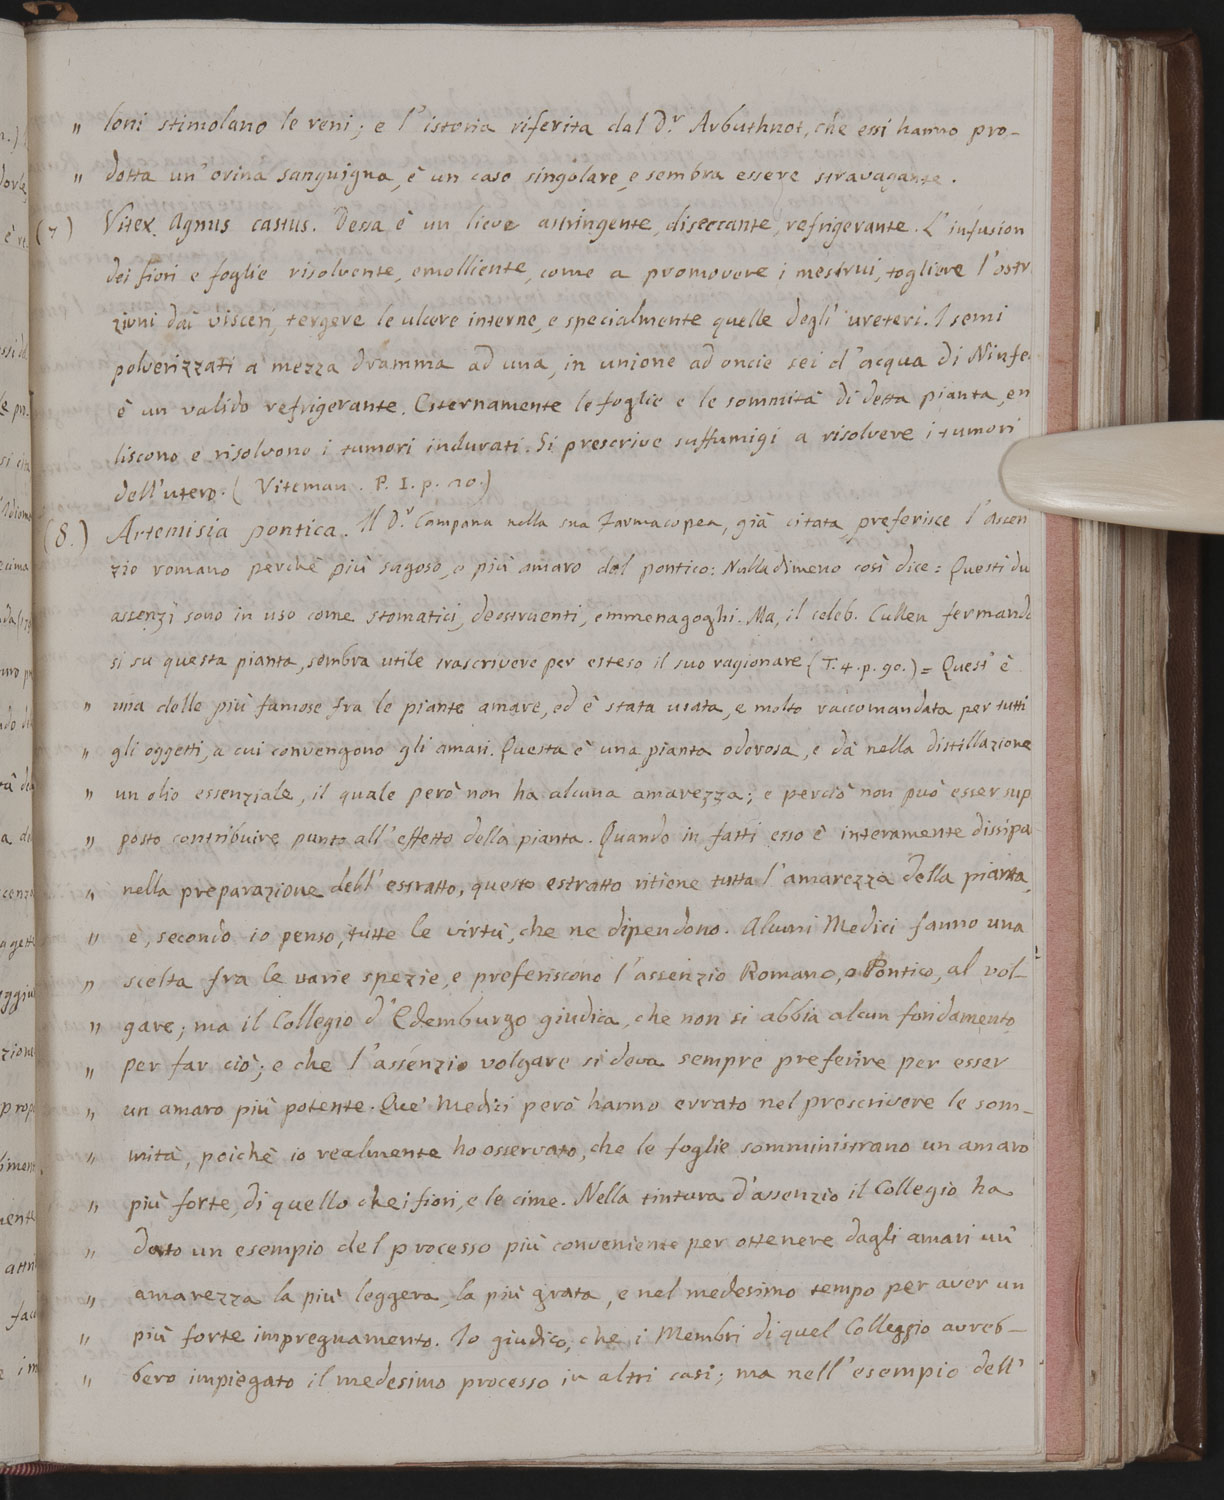 " loni stimolano le reni; e l'istoria riferita dal D.r Arbuthnot, che essi hanno pro-
" dotta un'orina sanguigna, è un caso singolare, e sembra essere stravagante.
(7) Vitex Agnus castus. Dessa è un lieve astringente, diseccante, refrigerante. L'infusion
dei fiori e foglie risolvente, emolliente, come a promovere i mestrui, togliere l'ostr
zioni dai visceri, tergere le ulcere interne, e specialmente quelle degli ureteri. I semi
polverizzati a mezza dramma ad una, in unione ad oncie sei d'acqua di Ninfe
è un valido refrigerante. Esternamente le foglie e le sommità di detta pianta, em
liscono e risolvono i tumori indurati. Si prescrive suffumigi a risolvere i tumori
dell'utero. (Viteman. P. I. p. 20.)
(8.) Artemisia pontica. Il D.r Campana nella sua Farmacopea, già citata, preferisce l'Ascen
zio romano perchè più sagoso, e più amaro del pontico: Nulladimeno così dice = Questi du
assenzj sono in uso come stomatici, deostruenti, emmenagoghi. Ma, il celeb. Cullen fermando
si su questa pianta, sembra utile trascrivere per esteso il suo ragionare (T. 4. p. 90.) = Quest'è
" una delle più famose fra le piante amare, ed è stata usata, e molto raccomandata per tutti
" gli oggetti, a cui convengono gli amari. Questa è una pianta odorosa, e dà nella distillazione
" un olio essenziale, il quale però non ha alcuna amarezza; e perciò non può esser sup
" posto contribuire punto all'effetto della pianta. Quando in fatti esso è interamente dissipa
" nella preparazione dell'estratto, questo estratto ritiene tutta l'amarezza della pianta,
" e, secondo io penso, tutte le virtù, che ne dipendono. Alcuni Medici fanno una
" scelta fra le varie spezie, e preferiscono l'assenzio Romano, o Pontico, al vol-
" gare; ma il Collegio d'Edemburgo giudica, che non si abbia alcun fondamento
" per far ciò; e che l'assenzio volgare si deva sempre preferire per esser
" un amaro più potente. Que' Medici però hanno errato nel prescrivere le som-
" mità, poichè io realmente ho osservato, che le foglie somministrano un amaro
" più forte, di quello che i fiori, e le cime. Nella tintura d'assenzio il Collegio ha
" dato un esempio del processo più conveniente per ottenere dagli amari un'
" amarezza la più leggera, la più grata, e nel medesimo tempo per aver un
" più forte impregnamento. Io giudico, che i Membri di quel Colleggio avreb-
" bero impiegato il medesimo processo in altri casi; ma nell'esempio dell'